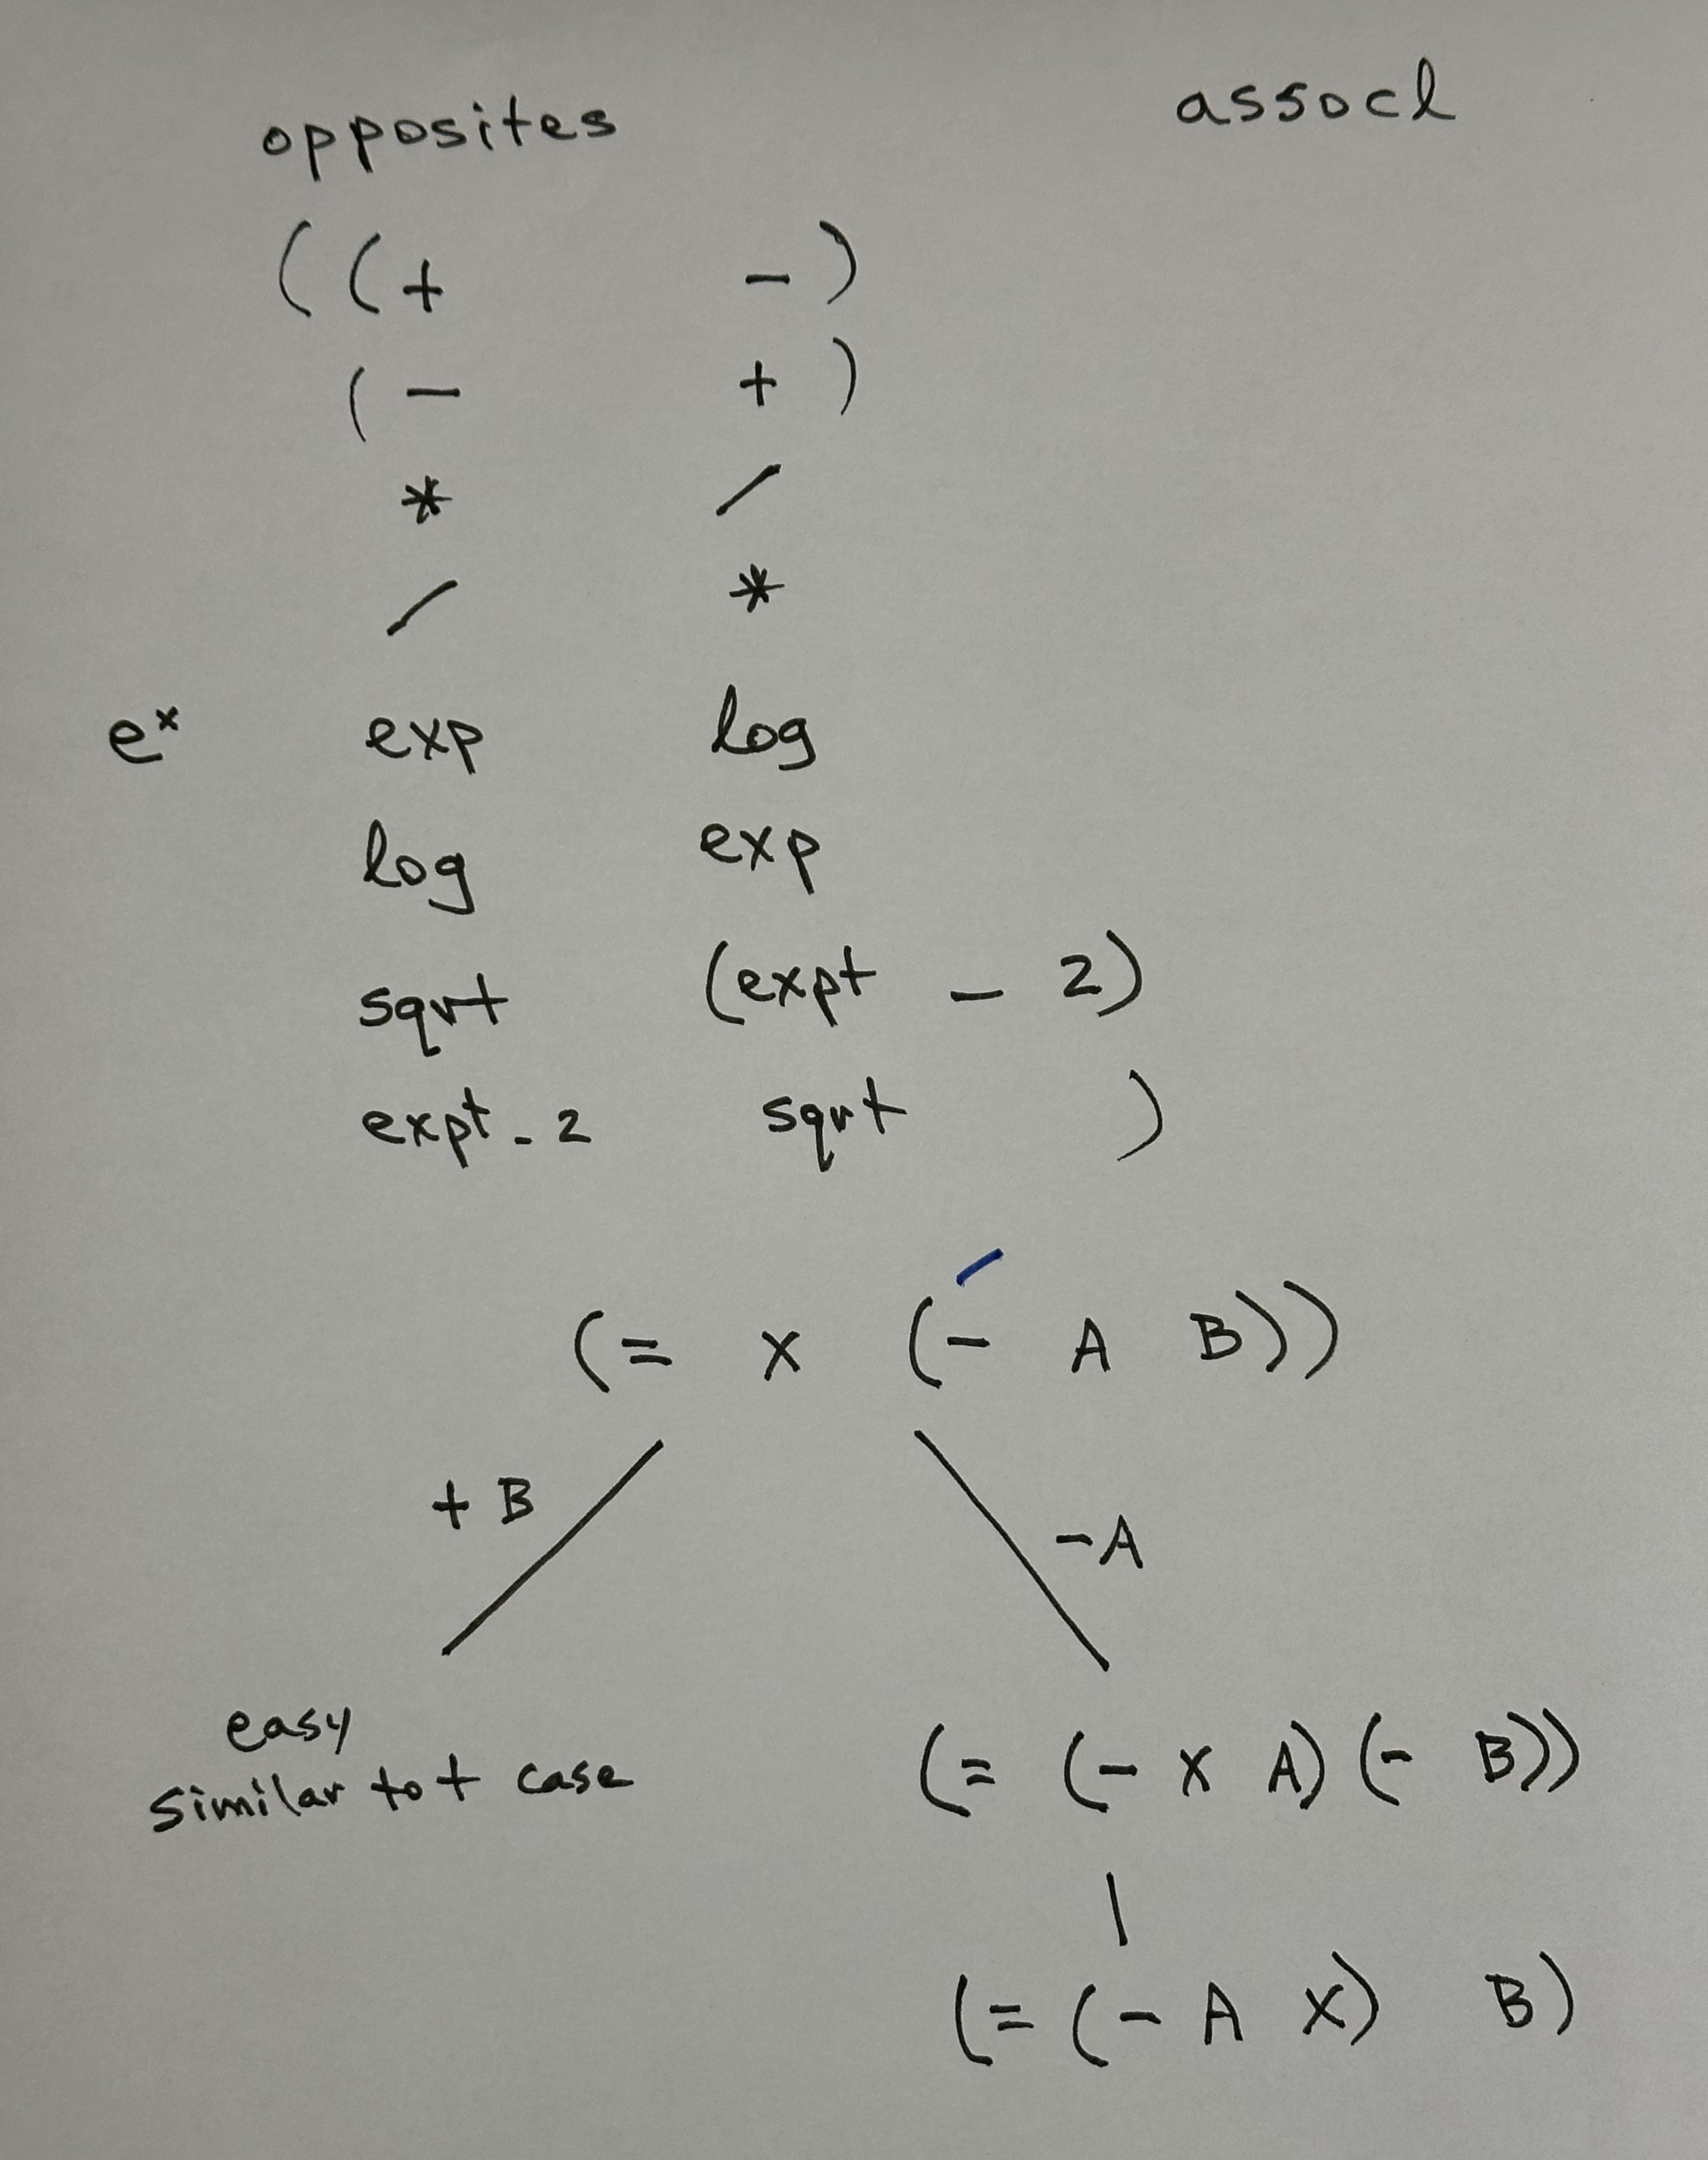 opposites assocl
((+ -)
(- +)
* /
/ *
e^x exp log
log exp
sqrt (expt - 2)
expt - 2 sqrt )
/
(= x (- A B))
+ B
-A
easy
similar to + case
(= (- x A) (- B))
|
(= (- A x) B)